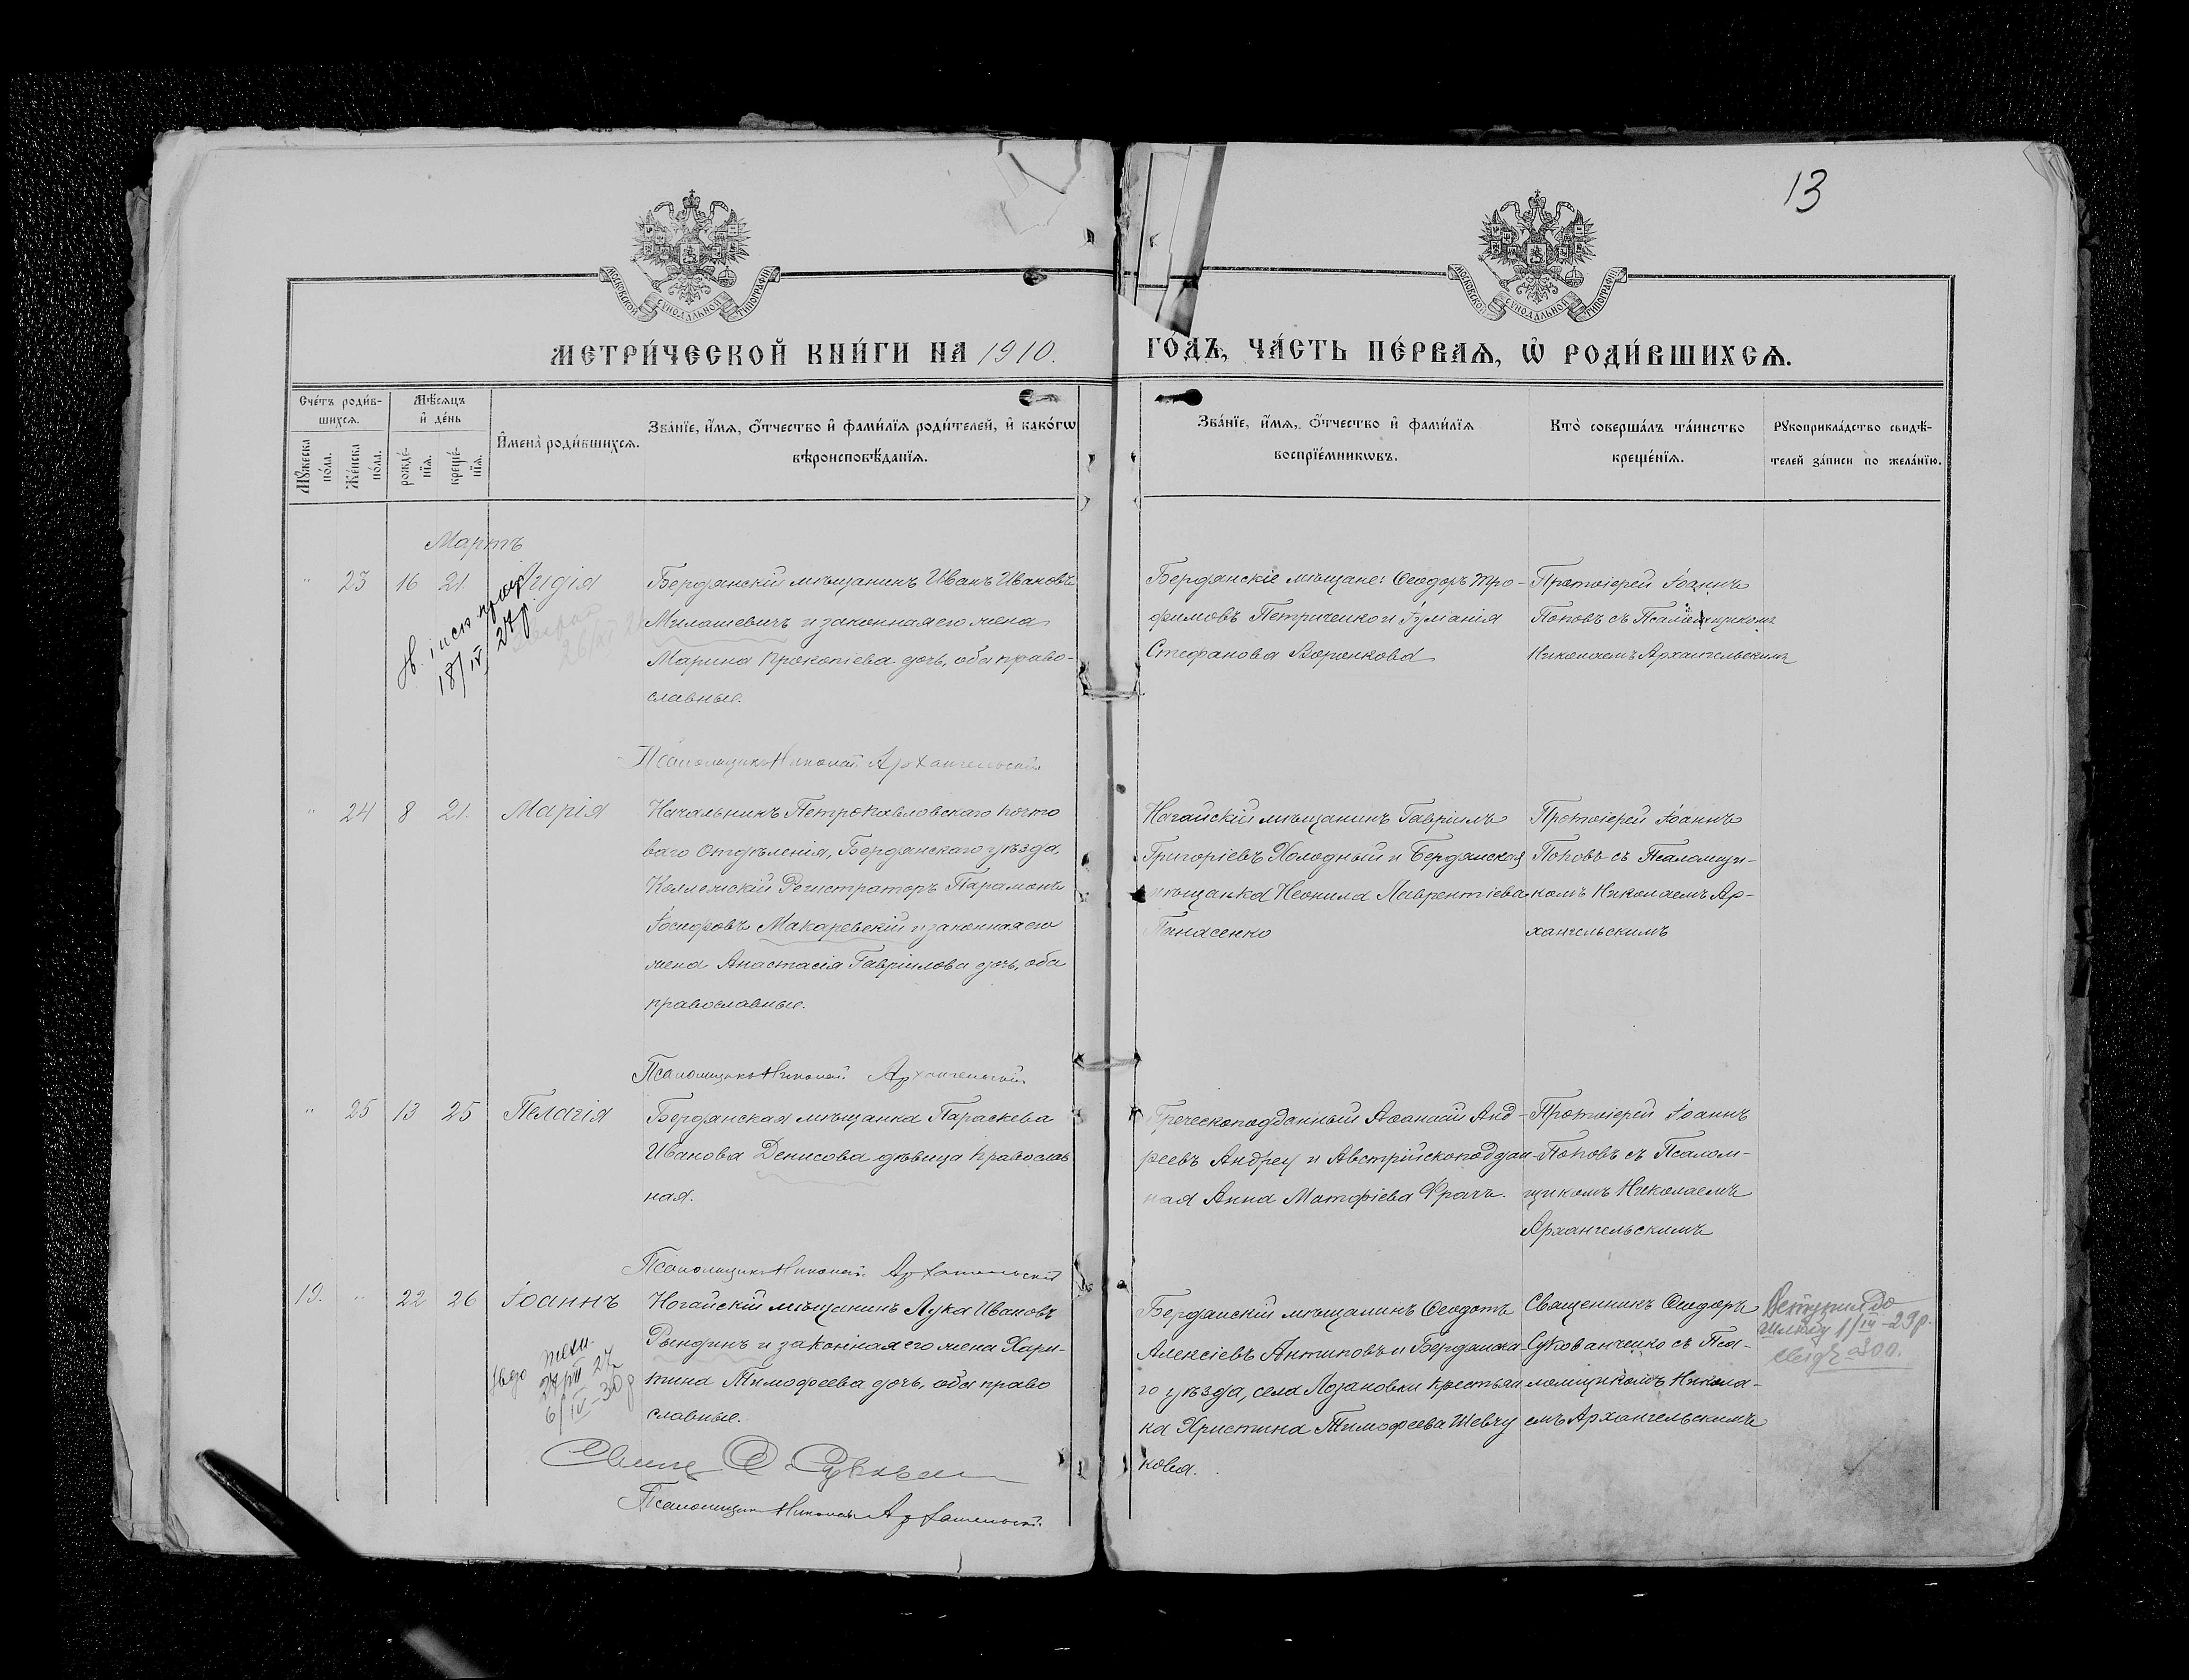 13
МОСКОВСКОЙ СѴНОДАЛЬНОЙ ТИПОГРАФІИ
МОСКОВСКОЙ СѴНОДАЛЬНОЙ ТИПОГРАФІИ
МЕТРИ́ЧЕСКОЙ КНИ́ГИ НА 1910.
ГО́ДЪ, ЧА́СТЬ ПЕ́РВАѦ, Ѽ РОДИ́ВШИХСѦ.
Сче́тъ роди́в-
шихсѧ.
Мꙋ́жеска по́ла.
Же́нска по́ла.
Мѣ́сѧцъ
и҆ де́нь
рожде́-
нїѧ.
креще́-
нїѧ.
И҆мена̀ роди́вшихсѧ.
Зва́нїе, и҆́мѧ, ѻ҆́тчество и҆ фами́лїѧ роди́телей, и҆ како́гѡ
вѣроисповѣ́данїѧ.
Зва́нїе, и҆́мѧ, ѻ҆́тчество и҆ фами́лїѧ
воспрїе́мникѡвъ.
Кто̀ соверша́лъ та́инство
креще́нїѧ.
Рꙋкоприкла́дство свидѣ́-
телей за́писи по жела́нїю.
Мартъ
" 23 16 21. Лидія
Бердянскій мѣщанинъ Иванъ Ивановъ
Милашевичъ и законная его жена
Марина Прокопіева дочь, оба право-
славные.
Бердянскіе мѣщане: Ѳеодоръ Тро-
фимовъ Петриченко и Іуліанія
Стефанова Воронкова
Протоіерей Іоаннъ
Поповъ съ Псаломщикомъ
Николаемъ Архангельскимъ
18/IV 27 р.
Псаломщикъ Николай Архангельскій
" 24 8 21. Марія
Начальникъ Петропавловскаго почто
ваго Отдѣленія, Бердянскаго уѣзда,
Коллежскій Регистраторъ Парамонъ
Іосифовъ Макаревскій и законная его
жена Анастасія Гавріилова дочь, оба
православные.
Ногайскій мѣщанинъ Гавріилъ
Григоріевъ Холодный и Бердянская
мѣщанка Неонила Лаврентіева
Панасенко
Протоіерей Іоаннъ
Поповъ съ Псаломщи-
комъ Николаемъ Ар-
хангельскимъ
Псаломщикъ Николай Архангельскій
" 25 13 25 Пелагія
Бердянская мѣщанка Параскева
Иванова Денисова дѣвица православ
ная.
Греческоподданный Аѳанасій Анд-
реевъ Андреу и Австрійскоподдан-
ная Анна Матѳіева Фрачъ.
Протоіерей Іоаннъ
Поповъ съ Псалом-
щикомъ Николаемъ
Архангельскимъ
Псаломщикъ Николай Архангельскій
19. " 22 26 Іоаннъ
Ногайскій мѣщанинъ Лука Ивановъ
Рындинъ и законная его жена Хари-
тина Тимофеева дочь, оба право
славные.
Бердянскій мѣщанинъ Ѳеодотъ
Алексіевъ Антиповъ и Бердянска-
го уѣзда, села Лозановки крестьян
ка Христина Тимофеева Шевчу
кова.
Священникъ Ѳеодоръ
Сукованченко съ Пса-
ломщикомъ Никола-
емъ Архангельскимъ
Вступив до
шлюбу 1/IV-29р.
6/IV-30 р
Псаломщикъ Николай Архангельскій